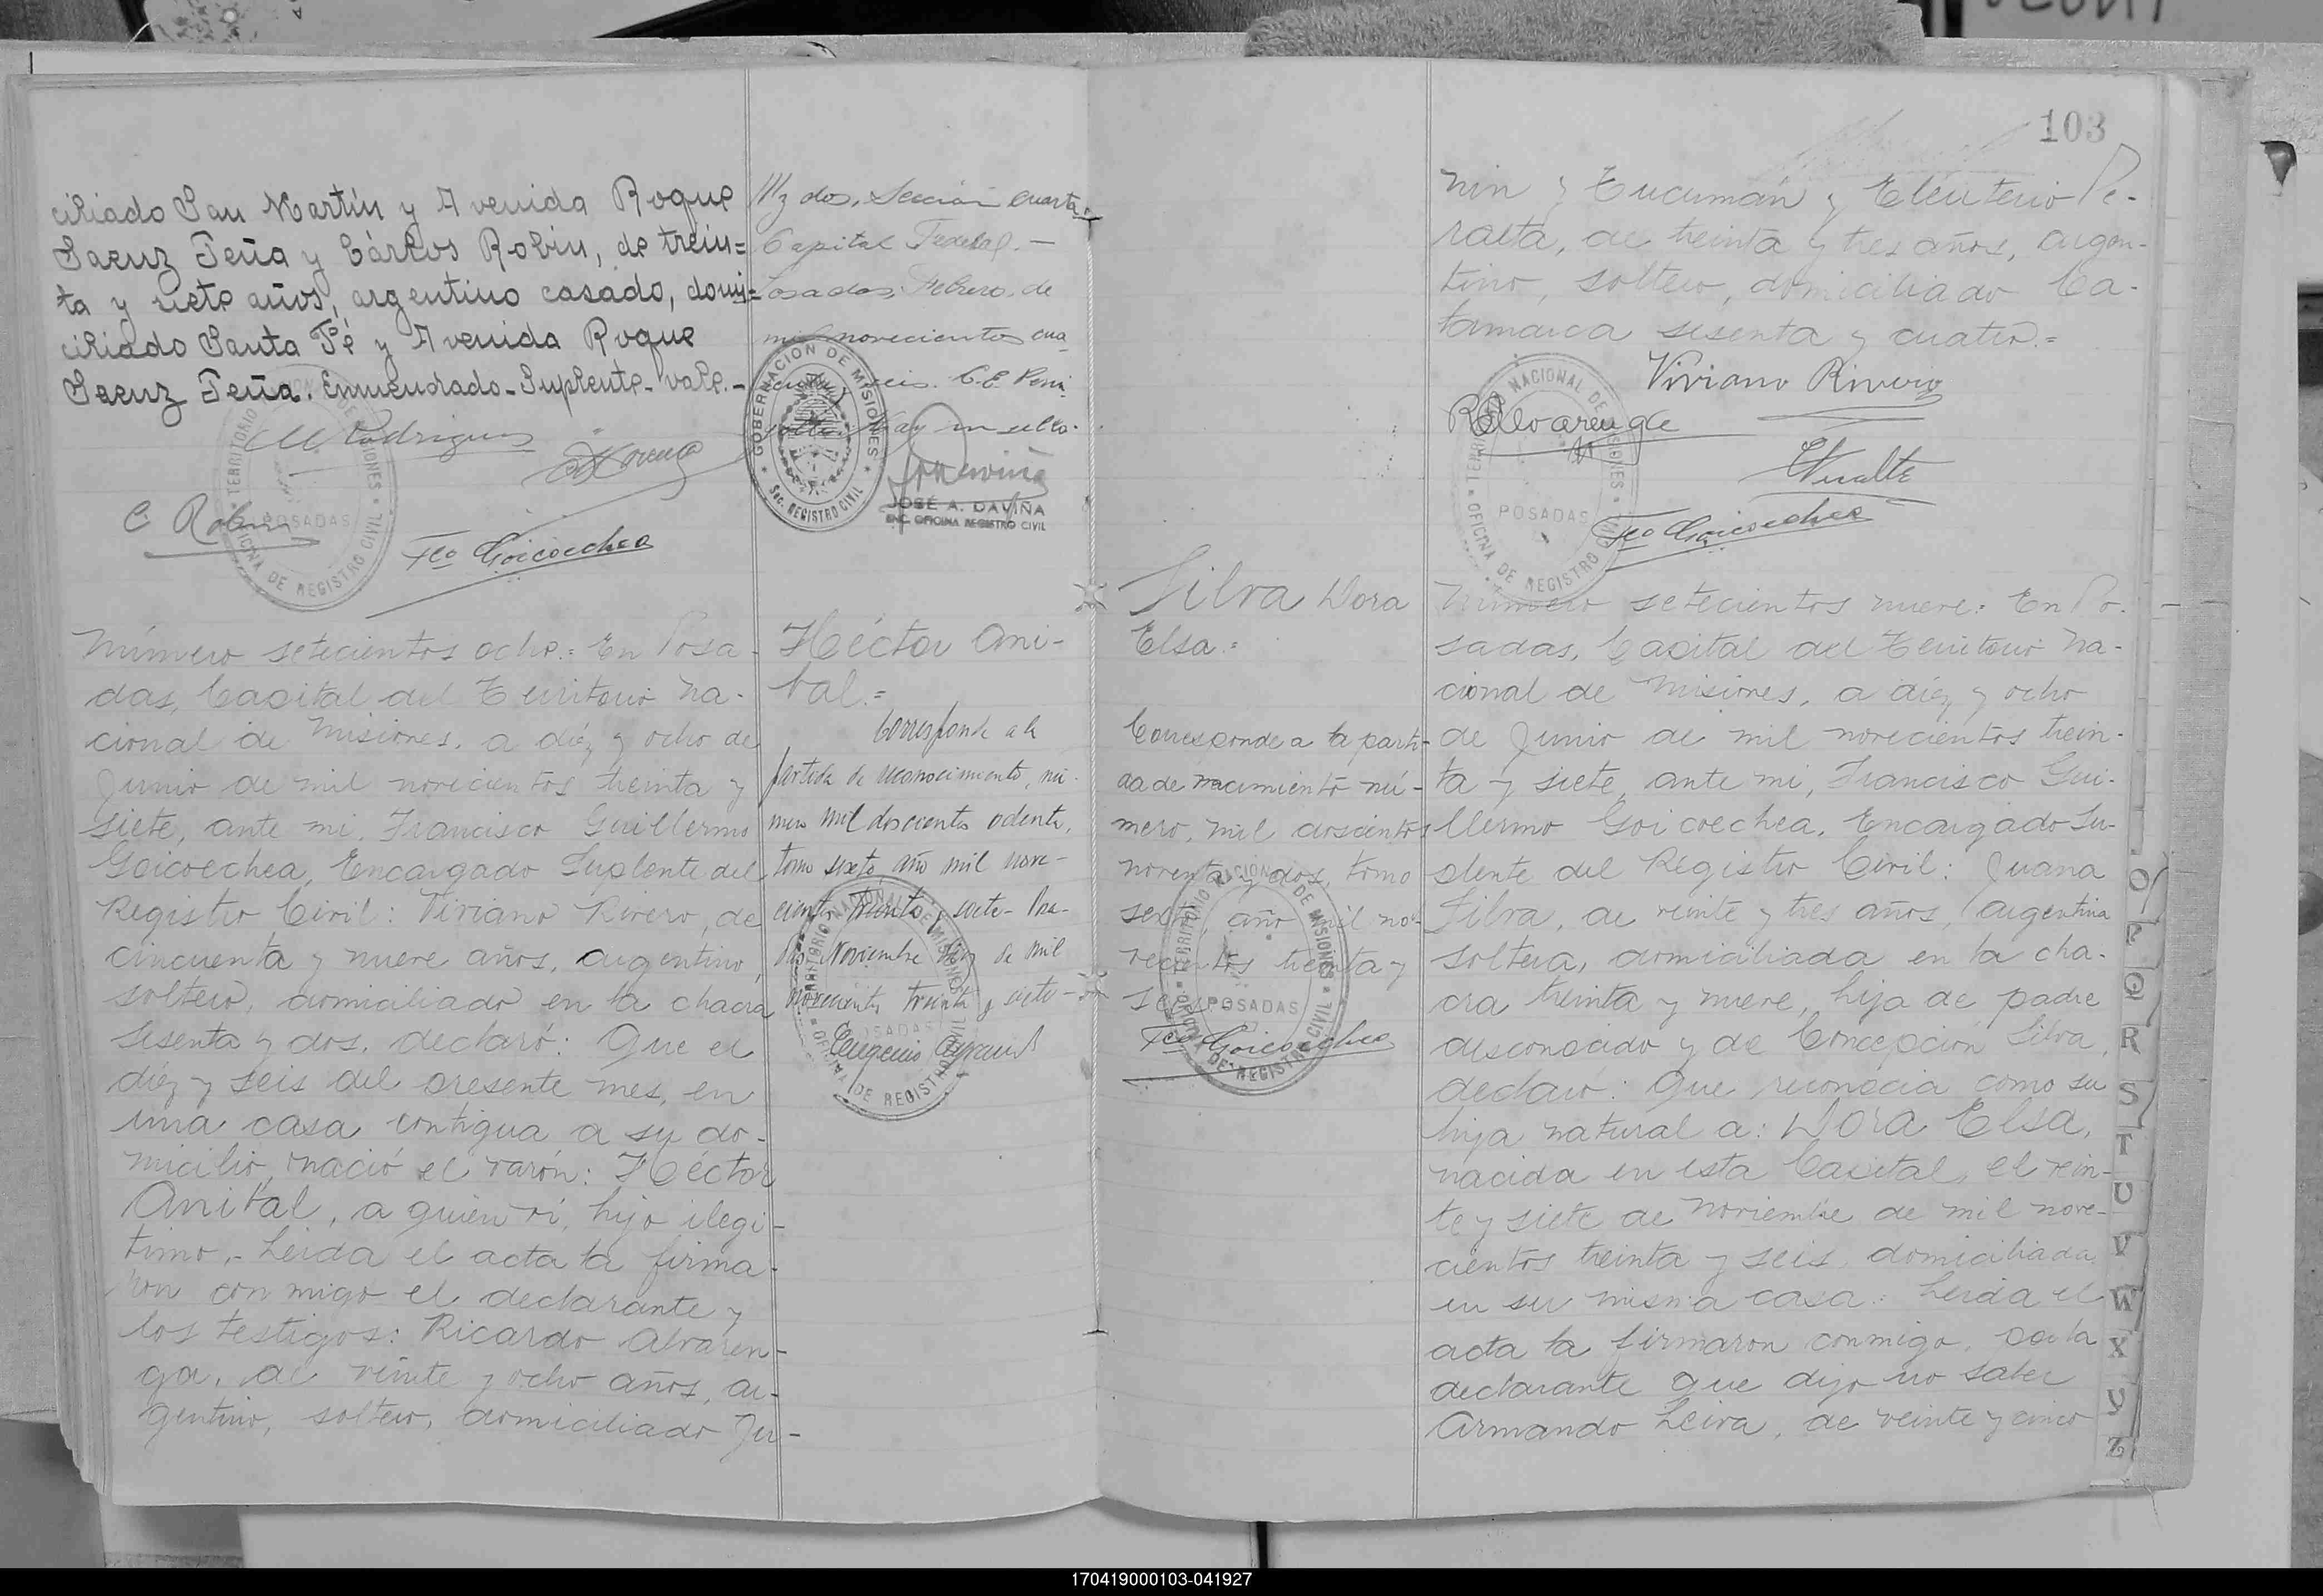 ciliado San Martín y Avenida Roque
Saenz Peña y Cárlos Robin, de trein=
ta y siete años, argentino casado, domi=
ciliado Santa Fé y Avenida Roque
Saenz Peña. Enmendado-Suplente-vale.-
M Rodriguez
C Robin
Fco Goicoechea
TERRITORIO NACIONAL DE MISIONES
POSADAS
OFICINA DE REGISTRO CIVIL
Mz dos, Sección cuarta,
Capital Federal.-
Posadas, Febrero, de
mil novecientos cua
seis. C.E.
Hay un sello.
GOBERNACION DE MISIONES
Sec. REGISTRO CIVIL
JOSÉ A. DAVIÑA
ENC. OFICINA REGISTRO CIVIL
Número setecientos ocho.= En Posa-
das, Capital del Territorio Na-
cional de Misiones, a diéz y ocho de
Junio de mil novecientos treinta y
siete, ante mi, Francisco Guillermo
Goicoechea, Encargado Suplente del
Registro Civil: Viviano Rivero, de
cincuenta y nueve años, argentino,
soltero, domiciliado en la chacra
sesenta y dos, declaró: Que el
diéz y seis del presente mes, en
una casa contigua a su do-
micilio, nació el varón: Héctor
Anibal, a quien ví, hijo ilegi-
timo.- Leida el acta la firma-
ron con migo el declarante y
los testigos: Ricardo Alvaren-
ga, de veinte y ocho años, ar-
gentino, soltero, domiciliado Ju-
Héctor Ani-
bal.=
Corresponde a la
partida de reconocimiento, nú-
mero mil doscientos ochenta,
tomo sexto, año mil nove-
cientos treinta y siete- Posa-
das Noviembre diez de mil
novecientos treinta y siete-
TERRITORIO NACIONAL DE MISIONES
POSADAS
OFICINA DE REGISTRO CIVIL
103
nin y Tucumán y Eleuterio Pe-
ralta, de treinta y tres años, argen-
tino, soltero, domiciliado Ca-
tamarca sesenta y cuatro.=
Viviano Rivero
RAlvarenga
EPeralta
Fco Goicoechea
TERRITORIO NACIONAL DE MISIONES
POSADAS
OFICINA DE REGISTRO CIVIL
Silva Dora
Elsa.=
Corresponde a la parti-
da de nacimiento nú-
mero, mil doscientos
noventa y dos, tomo
sexto, año mil no-
vecientos treinta y
seis
Fco Goicoechea
TERRITORIO NACIONAL DE MISIONES
POSADAS
OFICINA DE REGISTRO CIVIL
Número setecientos nueve: En Po-
sadas, Capital del Territorio Na-
cional de Misiones, a diéz y ocho
de Junio de mil novecientos trein-
ta y siete, ante mi, Francisco Gui-
llermo Goicoechea, Encargado Su-
plente del Registro Civil: Juana
Silva, de veinte y tres años, argentina
soltera, domiciliada en la cha-
cra treinta y nueve, hija de padre
desconocido y de Concepción Silva,
declaró: Que reconocia como su
hija natural a: Dora Elsa,
nacida en esta Capital, el vein-
te y siete de Noviembre de mil nove-
cientos treinta y seis, domiciliada
en su misma casa.= Leida el
acta la firmaron conmigo, por la
declarante que dijo no saber
Armando Leiva, de veinte y cinco
O
P
Q
R
S
T
U
V
W
X
Y
Z
170419000103-041927